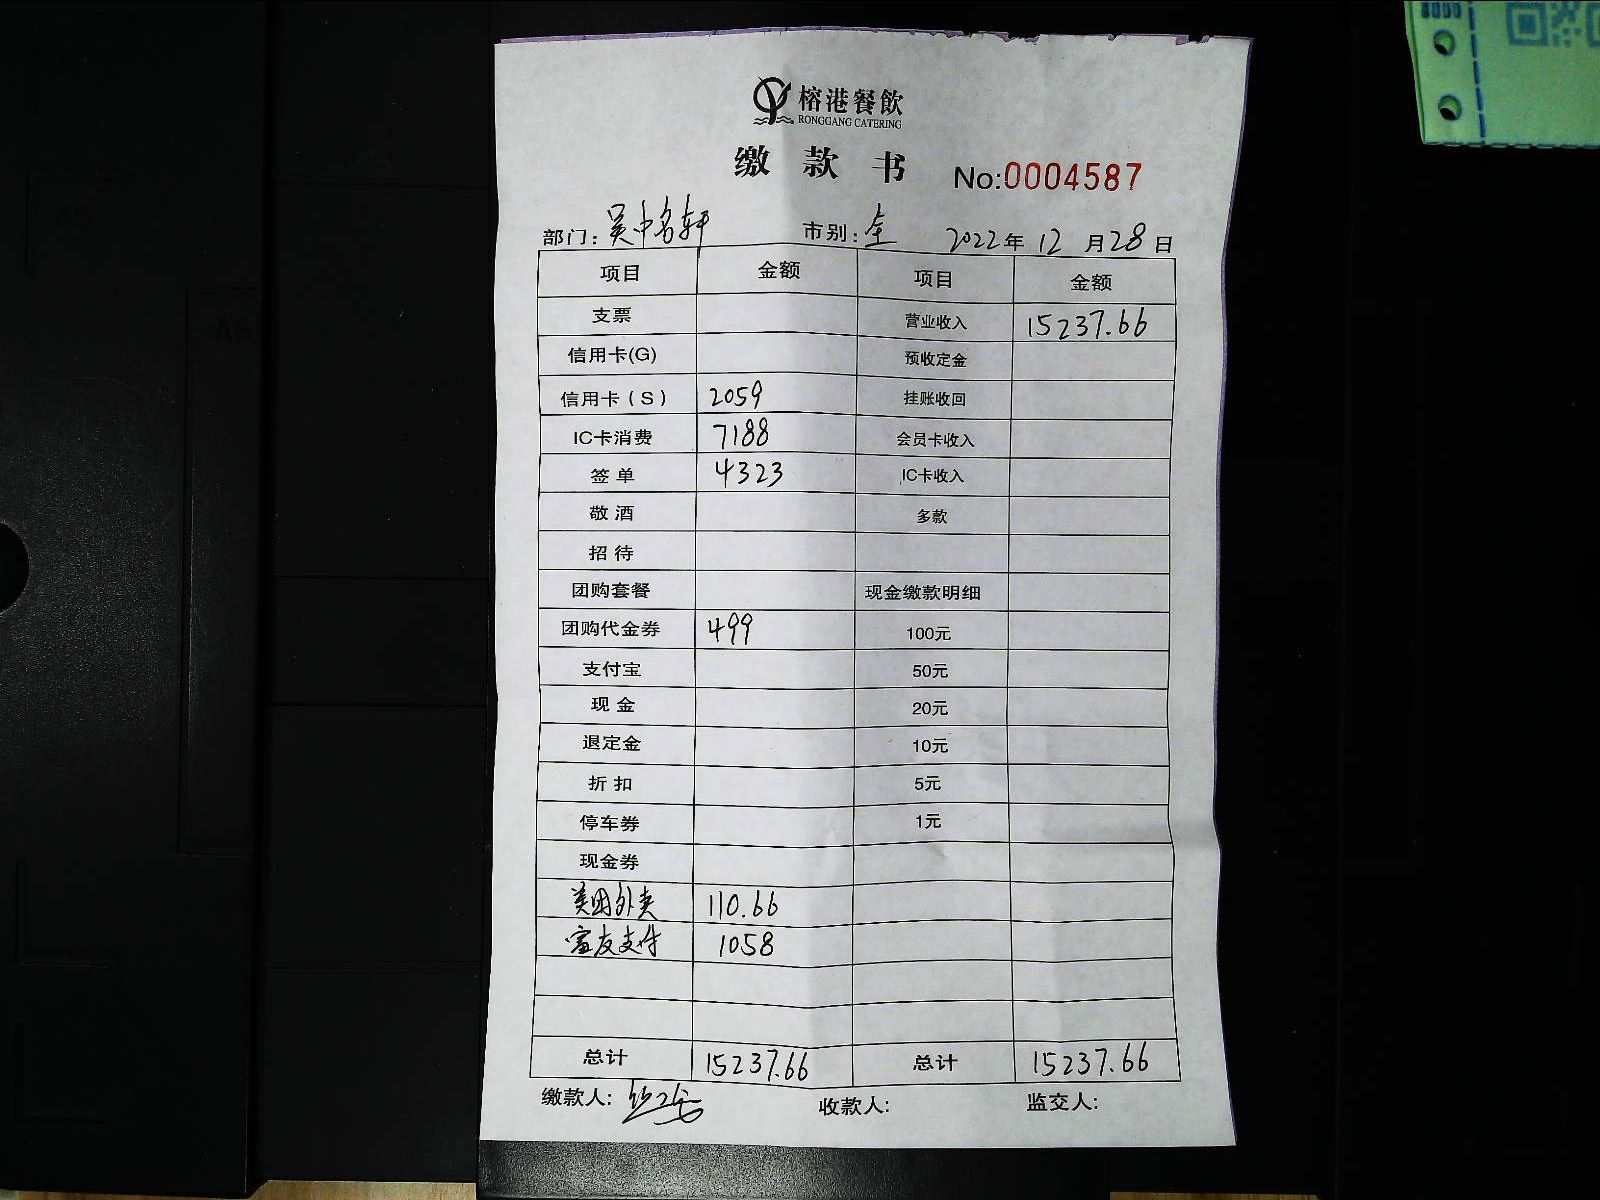 榕港餐飲
RONGGANG CATERING
缴款书 No:0004587
部门：吴中名轩 市别：全 2022年12月28日
项目 金额 项目 金额
支票 营业收入 15237.66
信用卡(G) 预收定金
信用卡（S） 2059 挂账收回
IC卡消费 7188 会员卡收入
签单 4323 IC卡收入
敬酒 多款
招待
团购套餐 现金缴款明细
团购代金券 499 100元
支付宝 50元
现金 20元
退定金 10元
折扣 5元
停车券 1元
现金券
美团外卖 110.66
富友支付 1058
总计 15237.66 总计 15237.66
缴款人: 收款人: 监交人: